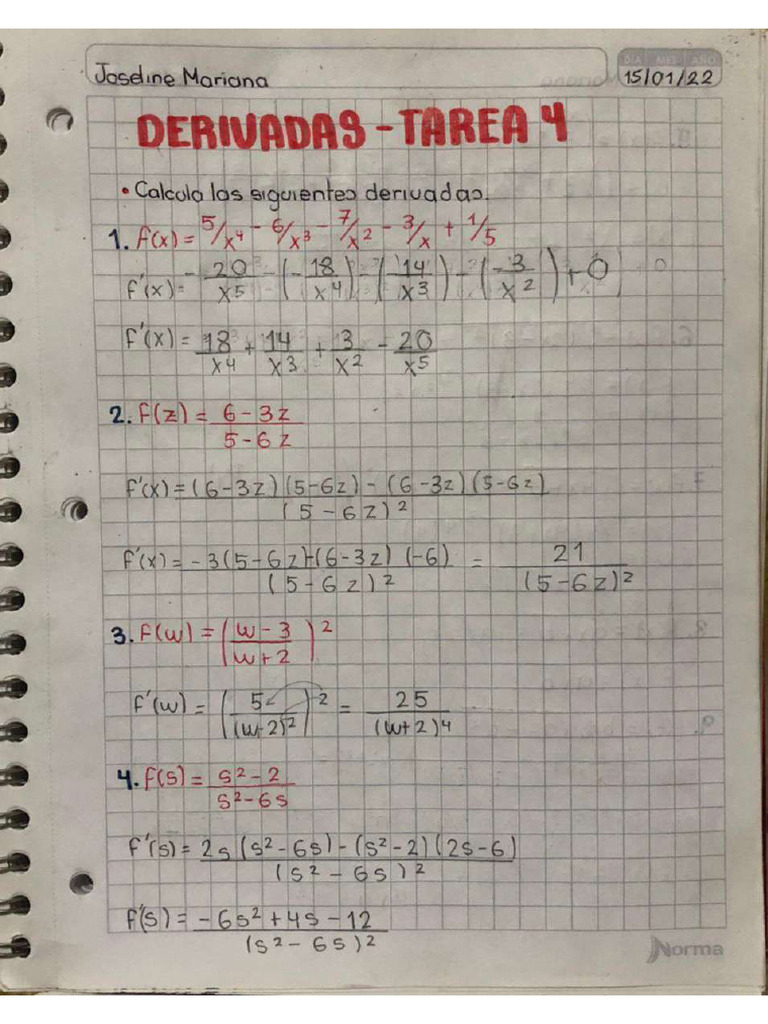 Joseline Mariana
DIA MES AÑO
15/01/22
DERIVADAS - TAREA 4
• Calcula las siguientes derivadas.
1. f(x) = 5/x⁴ - 6/x³ - 7/x² - 3/x + 1/5
f'(x)= - 20/x⁵ - (- 18/x⁴) - (- 14/x³) - (- 3/x²) + 0
f'(x) = 18/x⁴ + 14/x³ + 3/x² - 20/x⁵
2. f(z) = 6 - 3z / 5 - 6z
f'(x) = (6-3z)(5-6z) - (6-3z)(5-6z) / (5 - 6z)²
f'(x) = -3(5-6z)-(6-3z)(-6) / (5-6z)² = 21 / (5-6z)²
3. f(w) = (w-3 / w+2)²
f'(w) = (5 / (w+2)²)² = 25 / (w+2)⁴
4. f(s) = s²-2 / s²-6s
f'(s) = 2s(s²-6s) - (s²-2)(2s-6) / (s² - 6s)²
f'(s) = -6s²+4s-12 / (s²-6s)²
Norma